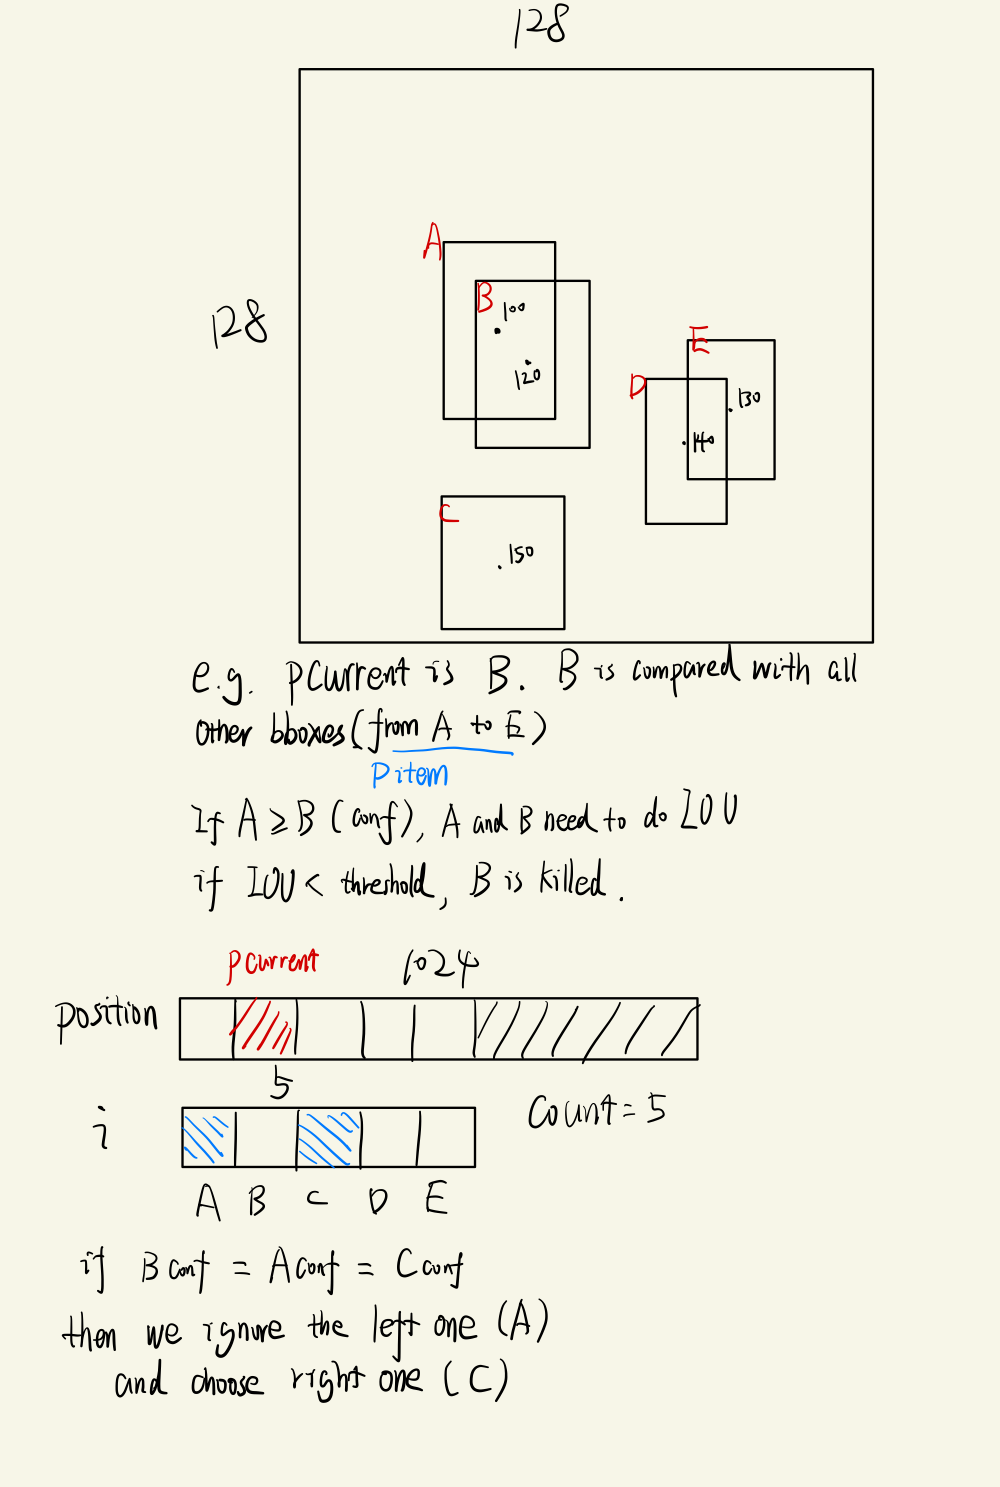 128
128
A
B
100
120
E
D
130
140
C
150
e.g. pcurrent is B. B is compared with all
other bboxes (from A to E)
Pitem
If A ≥ B (conf), A and B need to do IOU
if IOU < threshold, B is killed.
Pcurrent
1024
position
5
i
Count = 5
A B C D E
if Bconf = Aconf = Cconf
then we ignore the left one (A)
and choose right one (C)